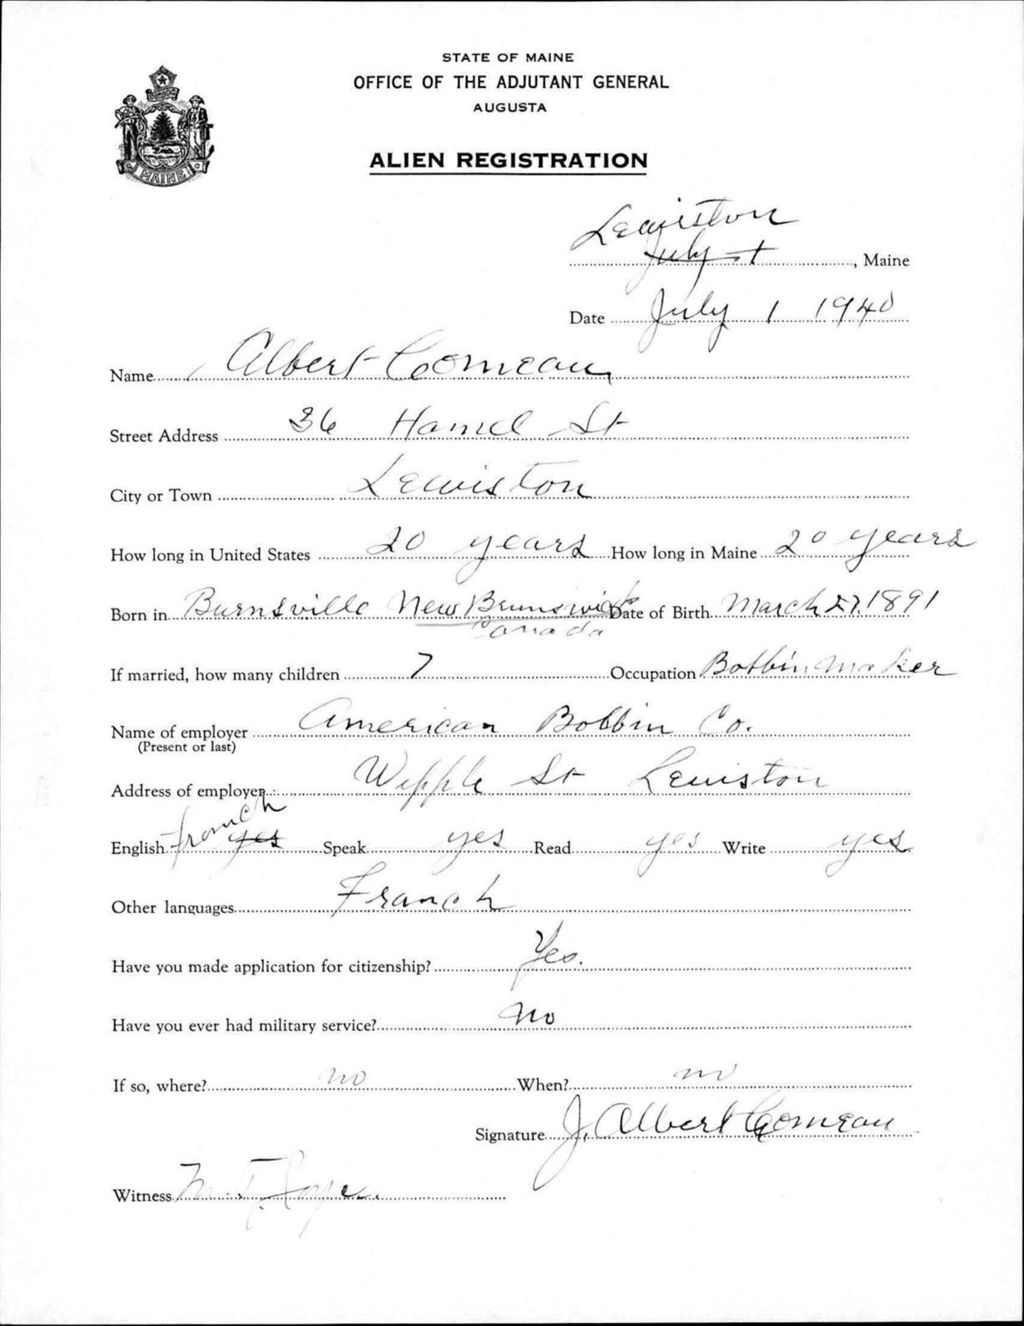 STATE OF MAINE
OFFICE OF THE ADJUTANT GENERAL
AUGUSTA
ALIEN REGISTRATION
MAINE
Lewiston
July 1, Maine
Date July 1 1940
Name Albert Comeau
Street Address 36 Hamel St
City or Town Lewiston
How long in United States 20 years How long in Maine 20 years
Born in Burnsville New Brunswick Date of Birth March 27, 1891
Canada
If married, how many children 7 Occupation Bobbin maker
Name of employer American Bobbin Co.
(Present or last)
Address of employer Wipple St Lewiston
English french yes Speak yes Read yes Write yes
Other languages Franch
Have you made application for citizenship? Yes.
Have you ever had military service? No
If so, where? no When? no
Signature J. Albert Comeau
Witness